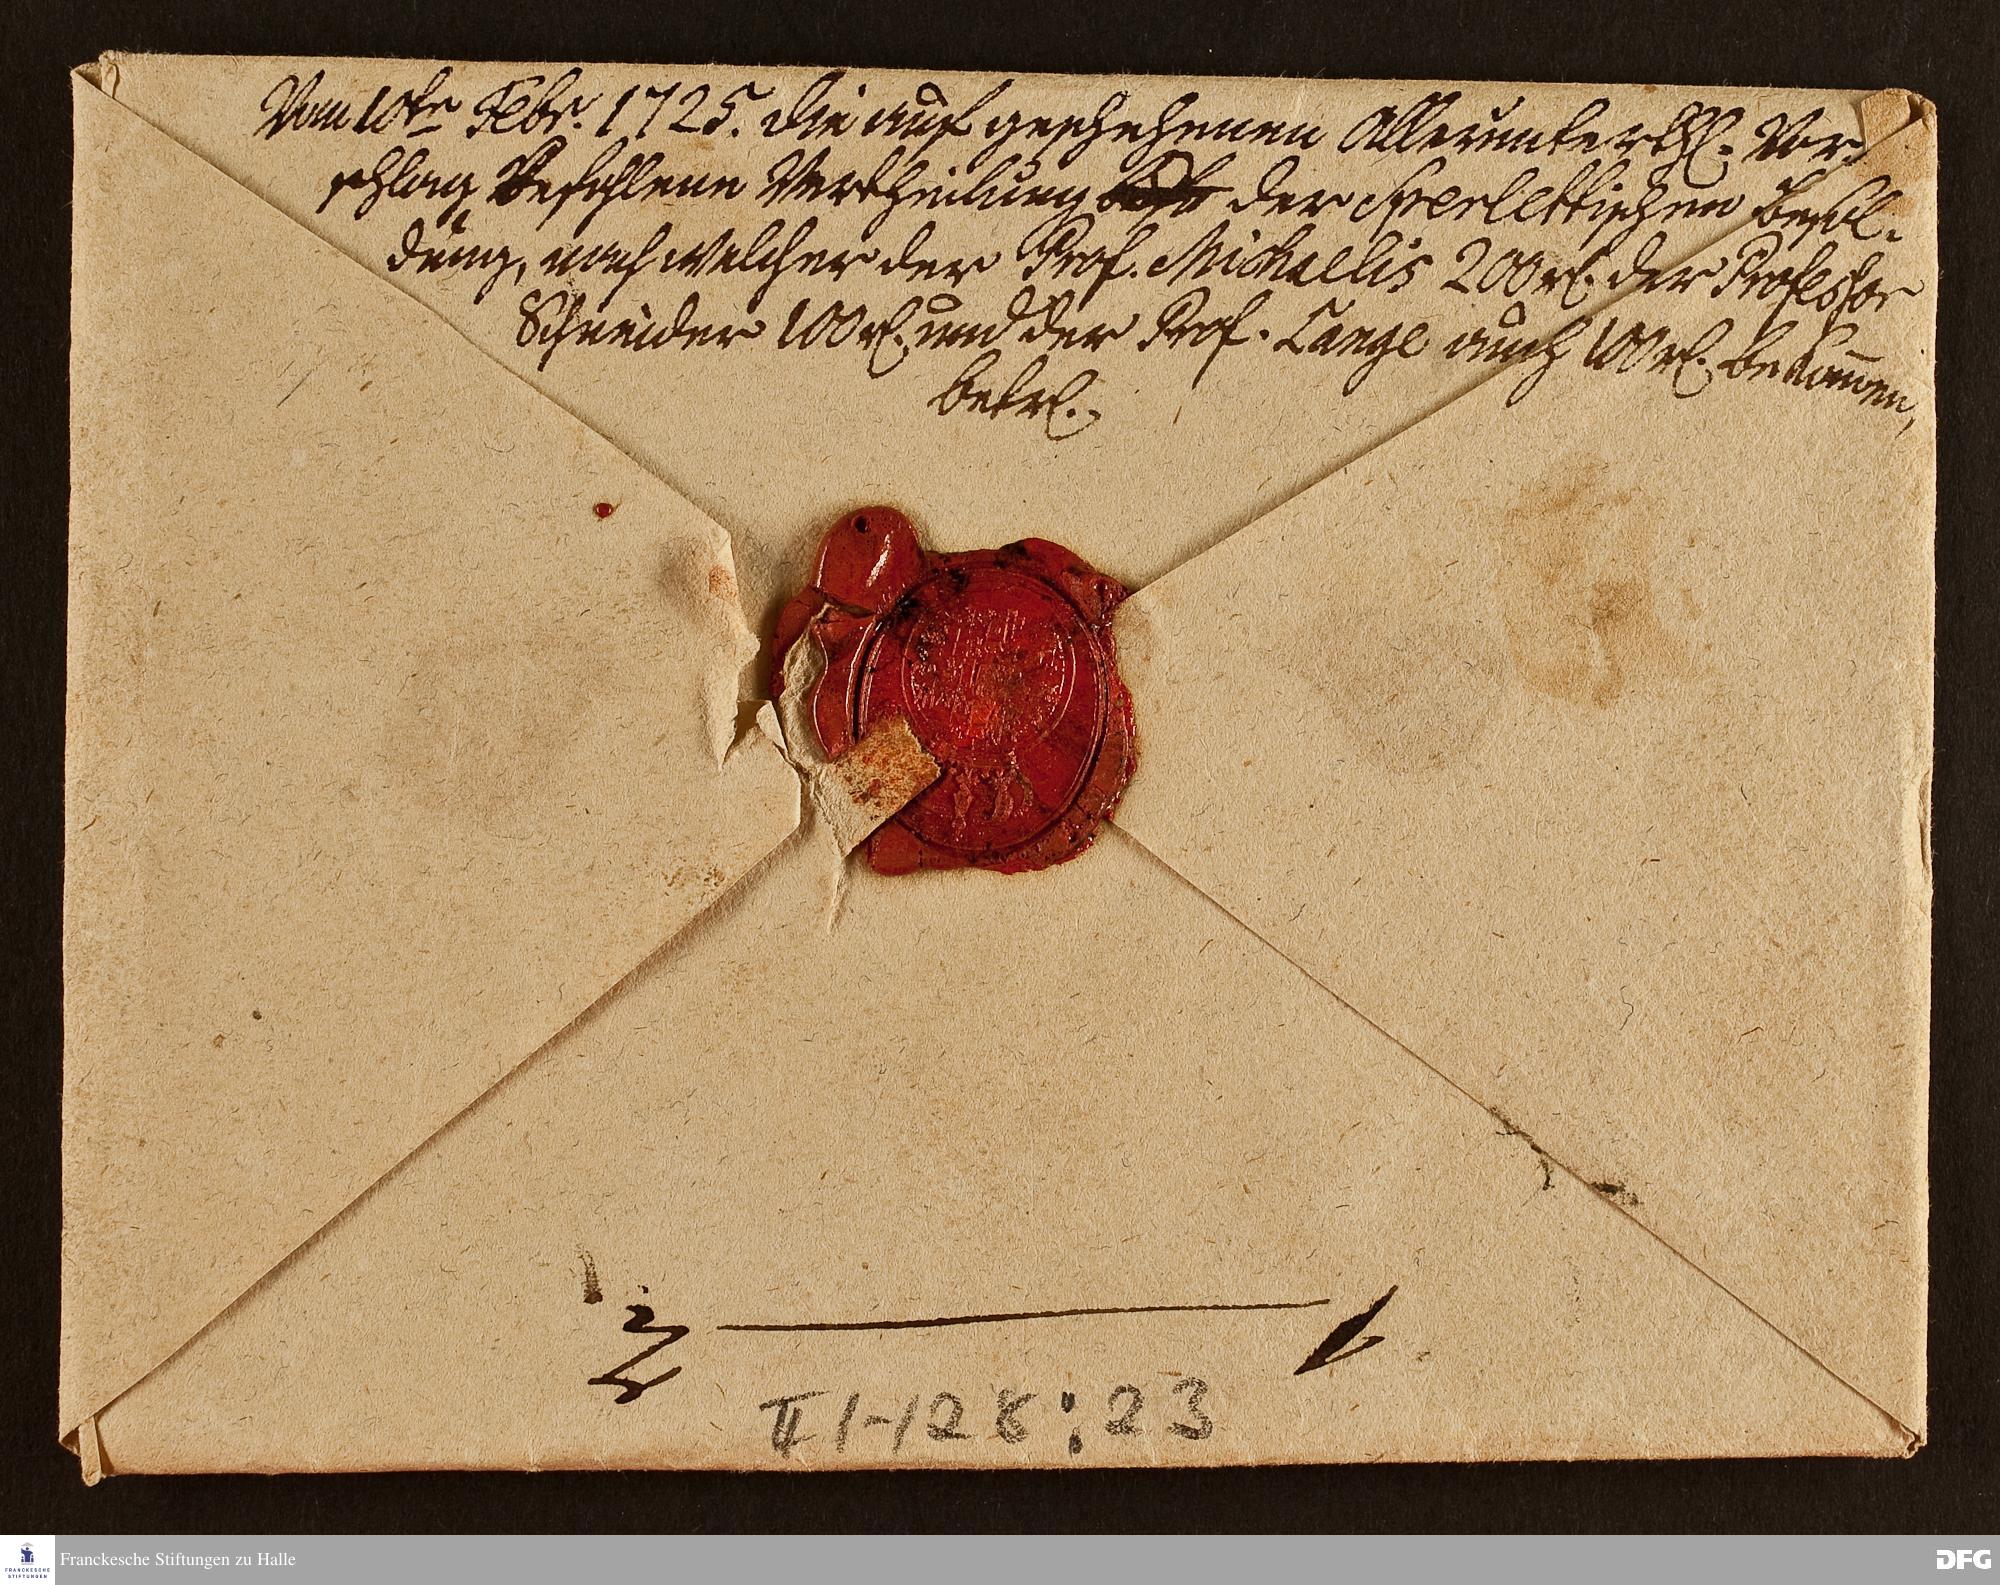 Vom 10ten Febr. 1725. die auf geschehenen Allerunterth. Vor
schlag Befohlene Vertheilung der Sperlettischen Besol-
dung, nach welcher der Prof. Michaelis 200 rl. der Professor
Schneider 100 rl. und der Prof. Lange auch 100 rl. bekom̄en,
betrl.
II 1-128:23
Franckesche Stiftungen zu Halle
FRANCKESCHE
STIFTUNGEN
DFG